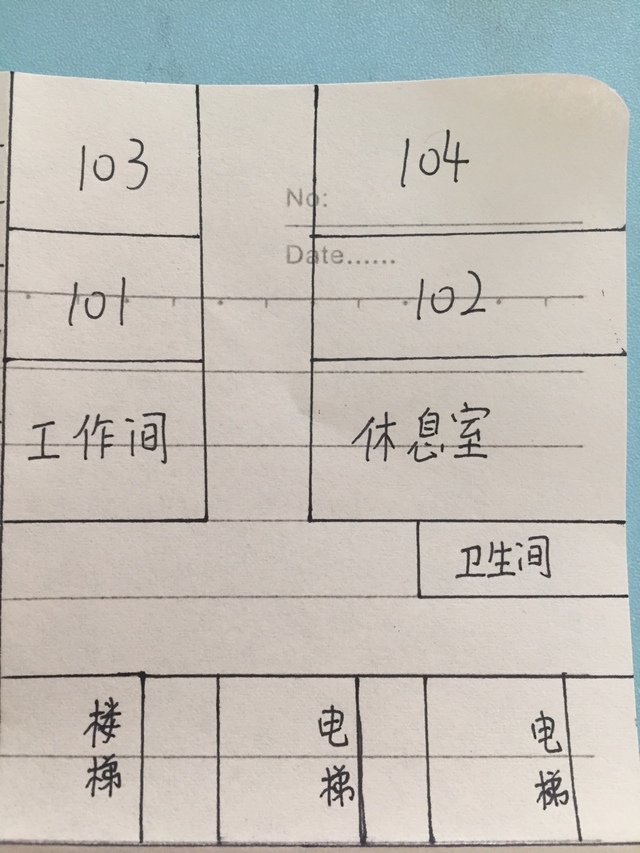 103
104
No:
Date......
101
102
工作间
休息室
卫生间
楼梯
电梯
电梯